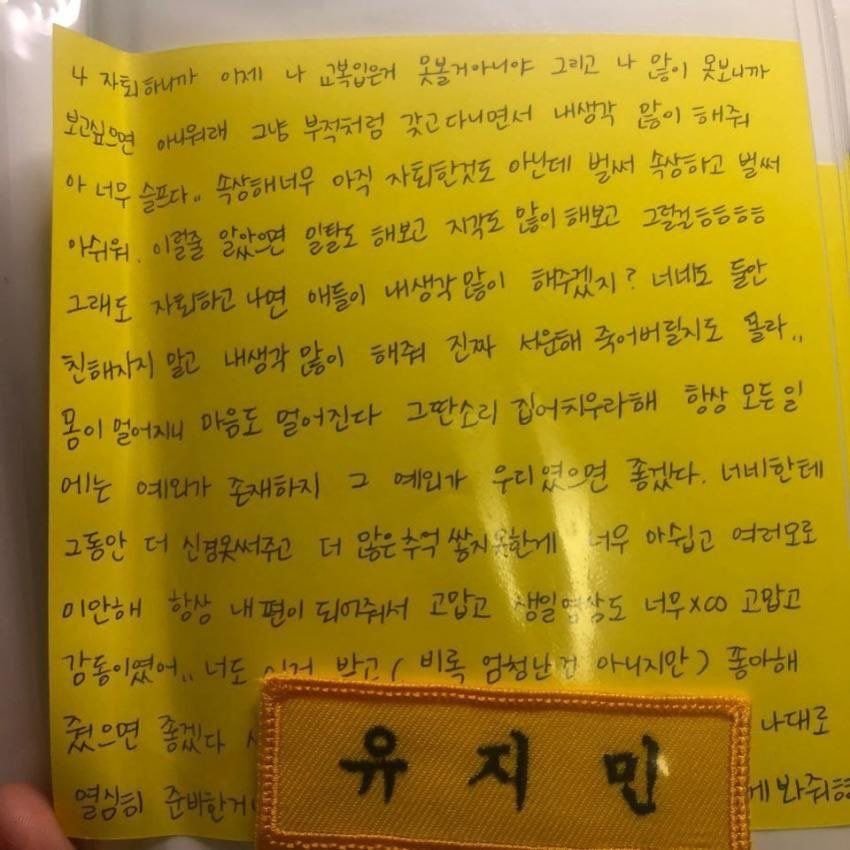 나 자퇴하니까 이제 나 교복입은거 못볼거아니야 그리고 나 많이 못보니까
보고싶으면 아니워래 그냥 부적처럼 갖고다니면서 내생각 많이 해줘
아 너무 슬프다.. 속상해너무 아직 자퇴한것도 아닌데 벌써 속상하고 벌써
아쉬워. 이럴줄 알았으면 일탈도 해보고 지각도 많이 해보고 그럴걸ㅎㅎㅎㅎ
그래도 자퇴하고 나면 애들이 내생각 많이 해주겠지? 너네도 둘만
친해지지 말고 내생각 많이 해줘 진짜 서운해 죽어버릴지도 몰라..
몸이 멀어지니 마음도 멀어진다 그딴소리 집어치우라해 항상 모든일
에는 예외가 존재하지 그 예외가 우리였으면 좋겠다. 너네한테
그동안 더 신경못써주고 더 많은추억 쌓지못한게 너무 아쉽고 여러모로
미안해 항상 내편이 되어줘서 고맙고 생일영상도 너무x∞ 고맙고
감동이였어.. 너도 이거 받고 ( 비록 엄청난건 아니지만 ) 좋아해
줬으면 좋겠다 나대로
열심히 준비한거 게 봐줘ㅎㅎ
유지민